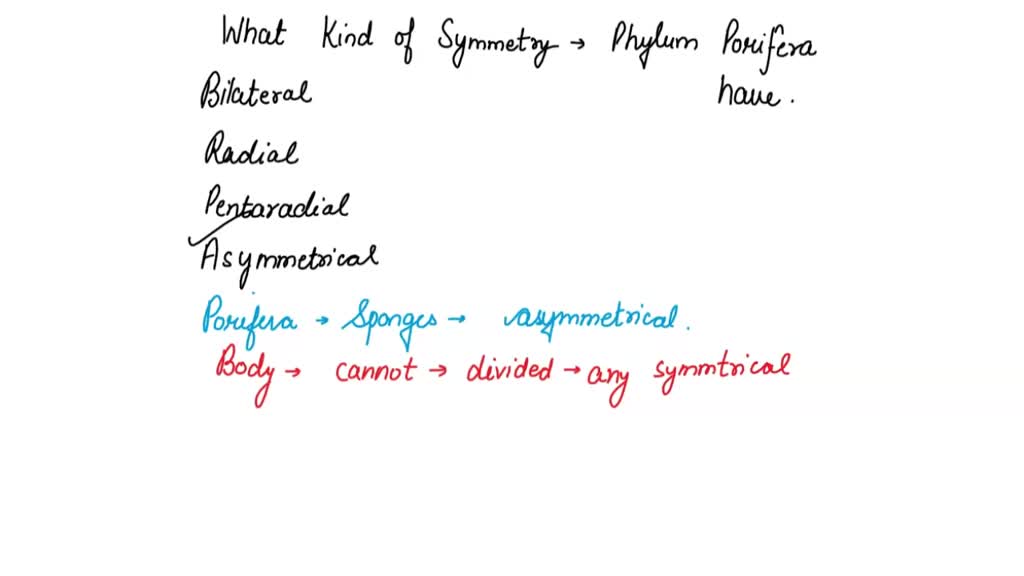 What Kind of Symmetry → Phylum Porifera
Bilateral have.
Radial
Pentaradial
Asymmetrical
Porifera → Sponges → asymmetrical.
Body → cannot → divided → any symmtrical